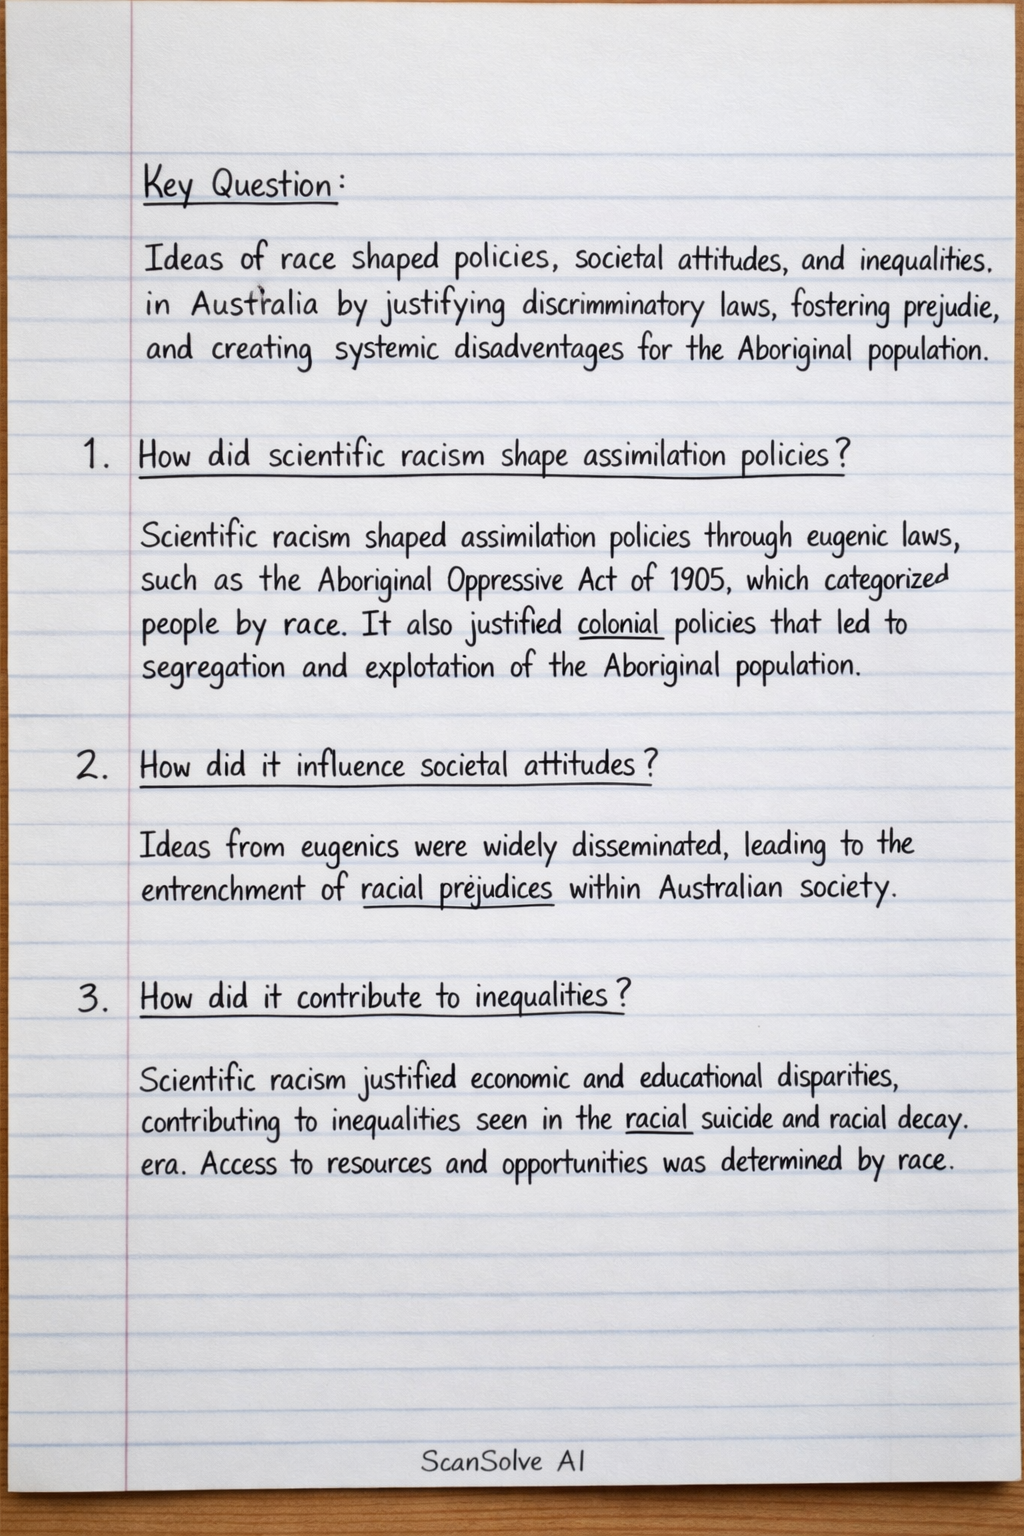 Key Question:
Ideas of race shaped policies, societal attitudes, and inequalities.
in Australia by justifying discrimminatory laws, fostering prejudie,
and creating systemic disadventages for the Aboriginal population.
1. How did scientific racism shape assimilation policies?
Scientific racism shaped assimilation policies through eugenic laws,
such as the Aboriginal Oppressive Act of 1905, which categorized
people by race. It also justified colonial policies that led to
segregation and explotation of the Aboriginal population.
2. How did it influence societal attitudes?
Ideas from eugenics were widely disseminated, leading to the
entrenchment of racial prejudices within Australian society.
3. How did it contribute to inequalities?
Scientific racism justified economic and educational disparities,
contributing to inequalities seen in the racial suicide and racial decay.
era. Access to resources and opportunities was determined by race.
ScanSolve AI